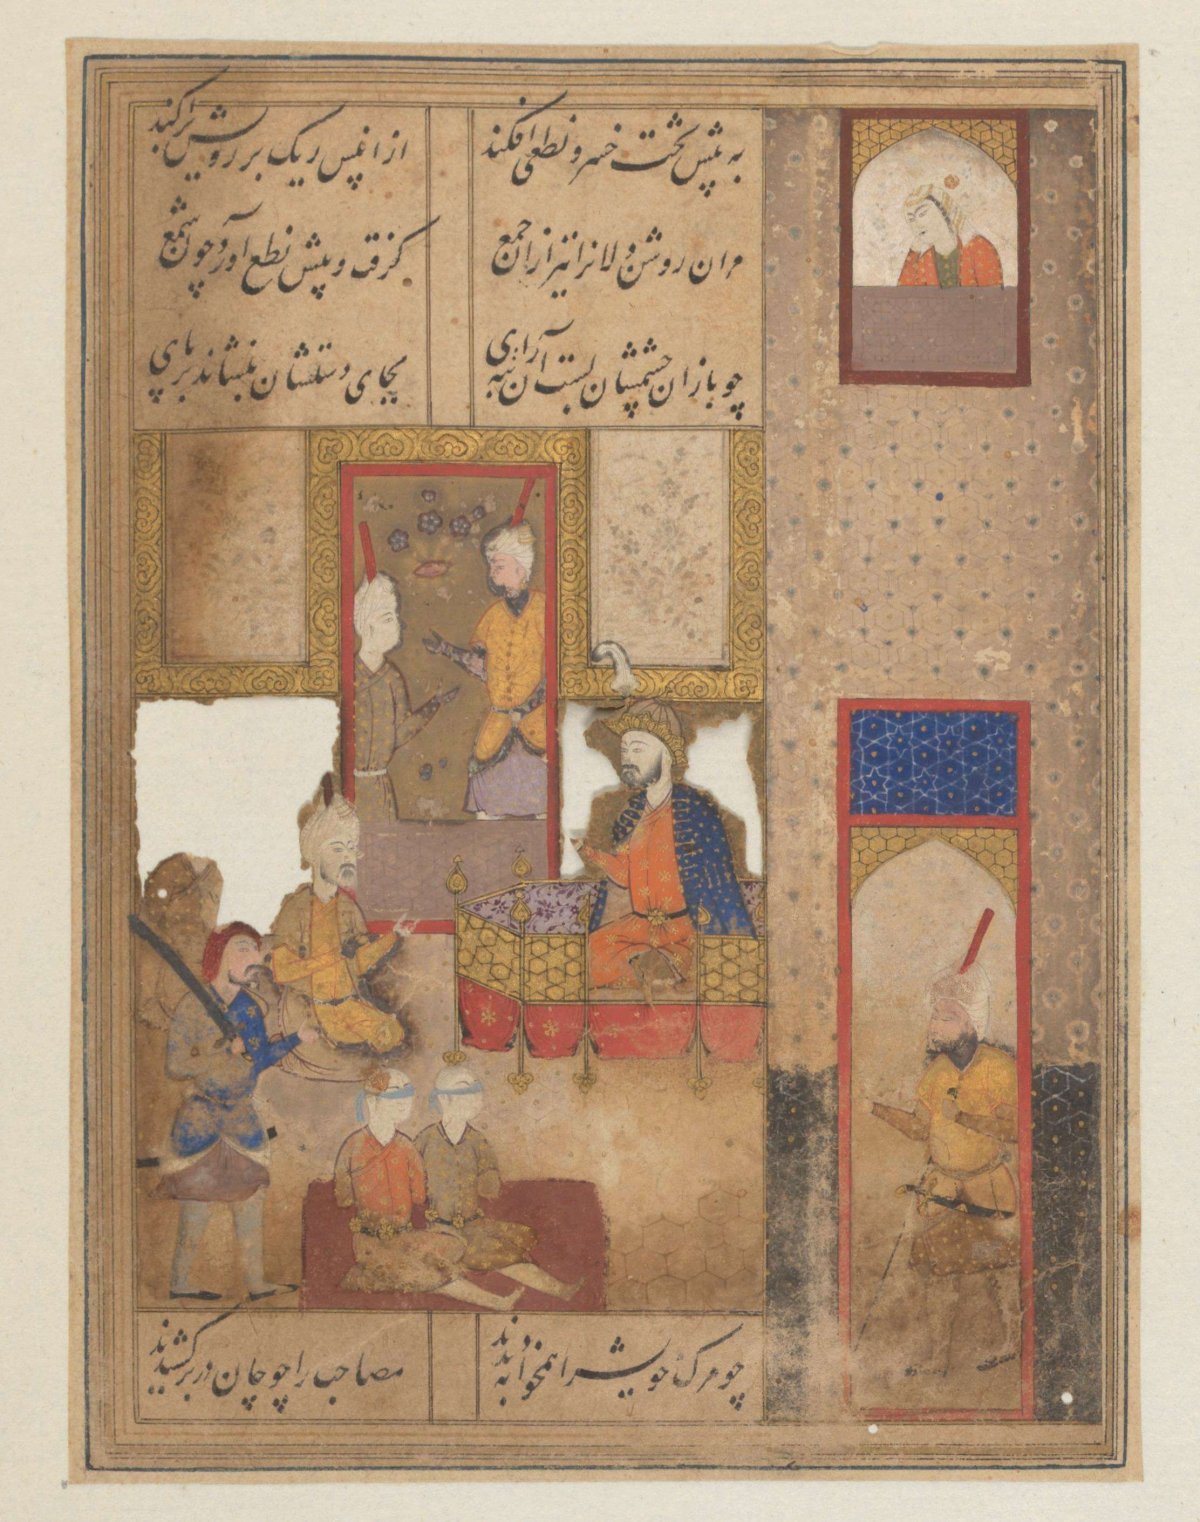 به پیش تخت خسرو نطعی افکند ازان پس ریک بر رویش پراکند
مران روشن دلانرا نیز ازان جمع کرفت و پیش نطع آورد چون شمع
چو بازان چشمشان بست آن تبه رای بجای دستشان بنشاند بر پای
چو مرک خویش را همخوابه دیدند مصاحب را چو جان در بر کشیدند